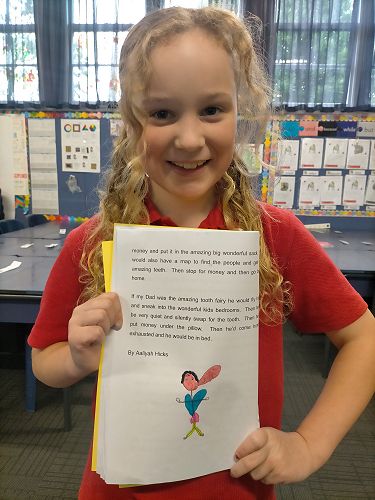 money and put it in the amazing big wonderful sack.
would also have a map to find the people and get
amazing teeth. Then stop for money and then go
home.
If my Dad was the amazing tooth fairy he would fly
and sneak into the wonderful kids bedrooms.
be very quiet and silently swap for the tooth. Then
put money under the pillow. Then he'd come
exhausted and he would be in bed.
By Aaliyah Hicks
while